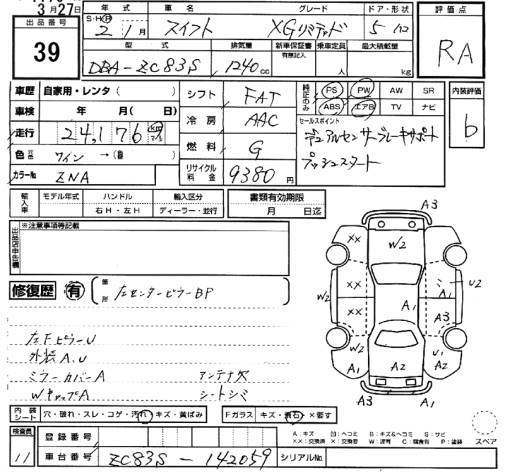 3月27日
出品番号 39
年式 車名 グレード ドア・形状 評価点
S・H・R 2年1月 スイフト XGリミテッド 5 RA
型式 排気量 新車保証書 乗車定員 最大積載量
有無記入
DBA-ZC83S 1240cc 人 kg
車歴 自家用・レンタ( ) シフト FAT 純正のみ PS PW AW SR 内装評価
ABS エアB TV ナビ b
車検 年 月( 日) 冷房 AAC セールスポイント
走行 24,176 デュアルセンサーブレーキサポート
燃料 G プッシュスタート
色 ワイン →( )
カラーNo ZNA リサイクル料金 9380円
輸入車 モデル年式 ハンドル 輸入区分 書類有効期限
右H・左H ディーラー・並行 月 日迄
※注意事項等記載
出品店申告欄
修復歴 有 箇所 左センターピラーBP
左FピラーU
外装A,U
ミラーカバーA アンテナ欠
WキャップA シートシミ
A3
XX W2
W2 XX A1 U2
XX A1 A3
W2 U1
A2 A2
A3 A1
内装シート 穴・破れ・スレ・コゲ・汚れ・キズ・黄ばみ Fガラス キズ・飛石・X要す
A:キズ U:ヘコミ B:キズ&ヘコミ S:サビ
XX:交換済 X:交換要 W:波有 C:腐食有 P:塗装 スペア
検査員 11 登録番号
車台番号 ZC83S-142059 シリアルNo.